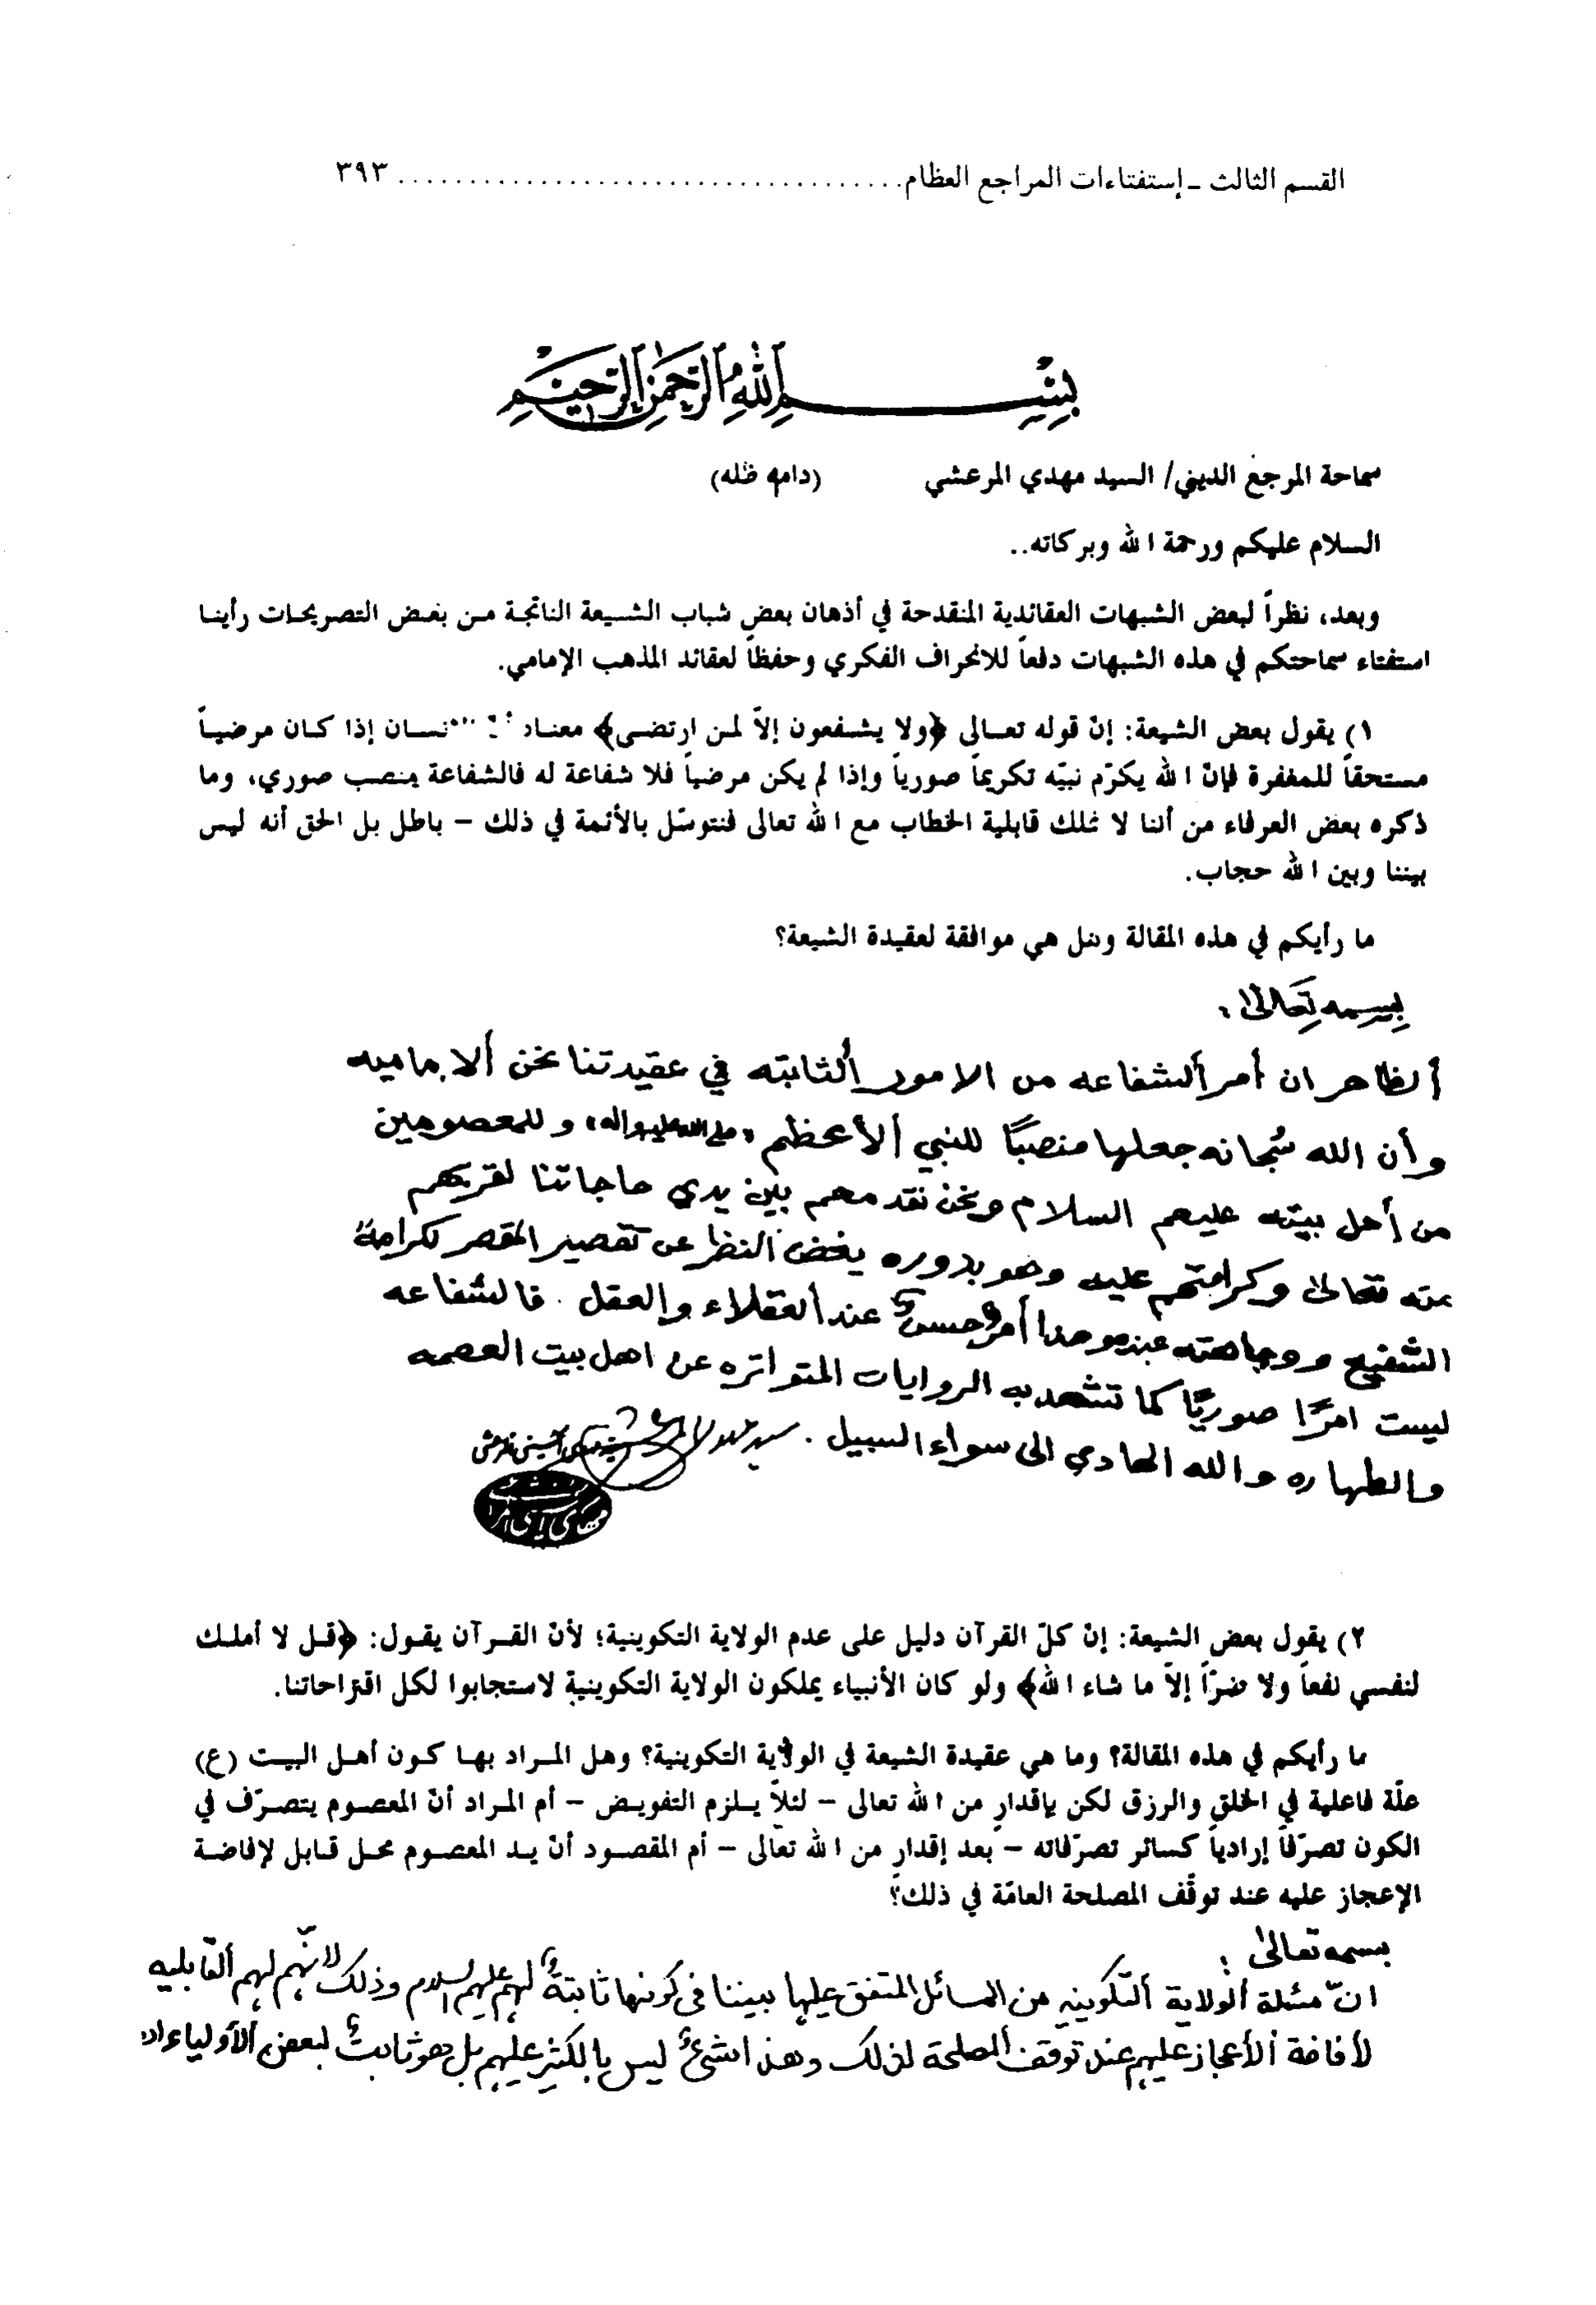 القسم الثالث ـ إستفتاءات المراجع العظام .................................... ٣٩٣
بسم الله الرحمن الرحيم
سماحة المرجع الديني/ السيد مهدي المرعشي (دامه ظله)
السلام عليكم ورحمة الله وبركاته..
وبعد، نظراً لبعض الشبهات العقائدية المنقدحة في أذهان بعض شباب الشيعة الناتجة من بعض التصريحات رأينا
استفتاء سماحتكم في هذه الشبهات دفعاً للانحراف الفكري وحفظاً لعقائد المذهب الإمامي.
١) يقول بعض الشيعة: إنّ قوله تعالى ﴿ولا يشفعون إلاّ لمن ارتضى﴾ معناه نسان إذا كان مرضياً
مستحقاً للمغفرة فإنّ الله يكرّم نبيّه تكريماً صورياً وإذا لم يكن مرضياً فلا شفاعة له فالشفاعة منصب صوري، وما
ذكره بعض العرفاء من أننا لا نملك قابلية الخطاب مع الله تعالى فنتوسّل بالأئمة في ذلك – باطل بل الحق أنه ليس
بيننا وبين الله حجاب.
ما رأيكم في هذه المقالة وهل هي موافقة لعقيدة الشيعة؟
بسمه تعالى:
ألظاهر ان أمر ألشفاعه من الامور ألثابته في عقيدتنا نحن ألاماميه
وأن الله سُبحانه جعلها منصبًا للنبي ألأعظم «صلى الله عليه واله» وللمعصومين
من أهل بيته عليهم السلام ونحن نقدمهم بين يدي حاجاتنا لقربهم
منه تعالى وكرامتهم عليه وهو بدوره يغض النظر عن تقصير المقصر لكرامة
الشفيع ووجاهته عنده وهذا أمرٌ حسنٌ عند ألعقلاء والعقل. فالشفاعه
ليست امرًا صوريًا كما تشهد به الروايات المتواتره عن اهل بيت العصمه
والطهاره والله الهادي الى سواء السبيل.
٢) يقول بعض الشيعة: إنّ كلّ القرآن دليل على عدم الولاية التكوينية؛ لأنّ القرآن يقول: ﴿قل لا أملك
لنفسي نفعاً ولا ضرّاً إلاّ ما شاء الله﴾ ولو كان الأنبياء يملكون الولاية التكوينية لاستجابوا لكل اقتراحاتنا.
ما رأيكم في هذه المقالة؟ وما هي عقيدة الشيعة في الولاية التكوينية؟ وهل المراد بها كون أهل البيت (ع)
علّة فاعلية في الخلق والرزق لكن بإقدارٍ من الله تعالى – لئلاّ يلزم التفويض – أم المراد أنّ المعصوم يتصرّف في
الكون تصرّفاً إرادياً كسائر تصرّفاته – بعد إقدارٍ من الله تعالى – أم المقصود أنّ يد المعصوم محل قابل لإفاضة
الإعجاز عليه عند توقّف المصلحة العامّة في ذلك؟
بسمه تعالى:
انّ مسئلة ألولاية ألتّكوينيه من المسائل المتفق عليها بيننا فى كونها ثابتةً لهم عليهم السلام وذلك لانّهم لهم ألقابليه
لأفاضة ألأعجاز عليهم عند توقف ألمصلحة لذلك وهذا شئٌ ليس بالكثير عليهم بل هو ثابتٌ لبعض ألأولياء